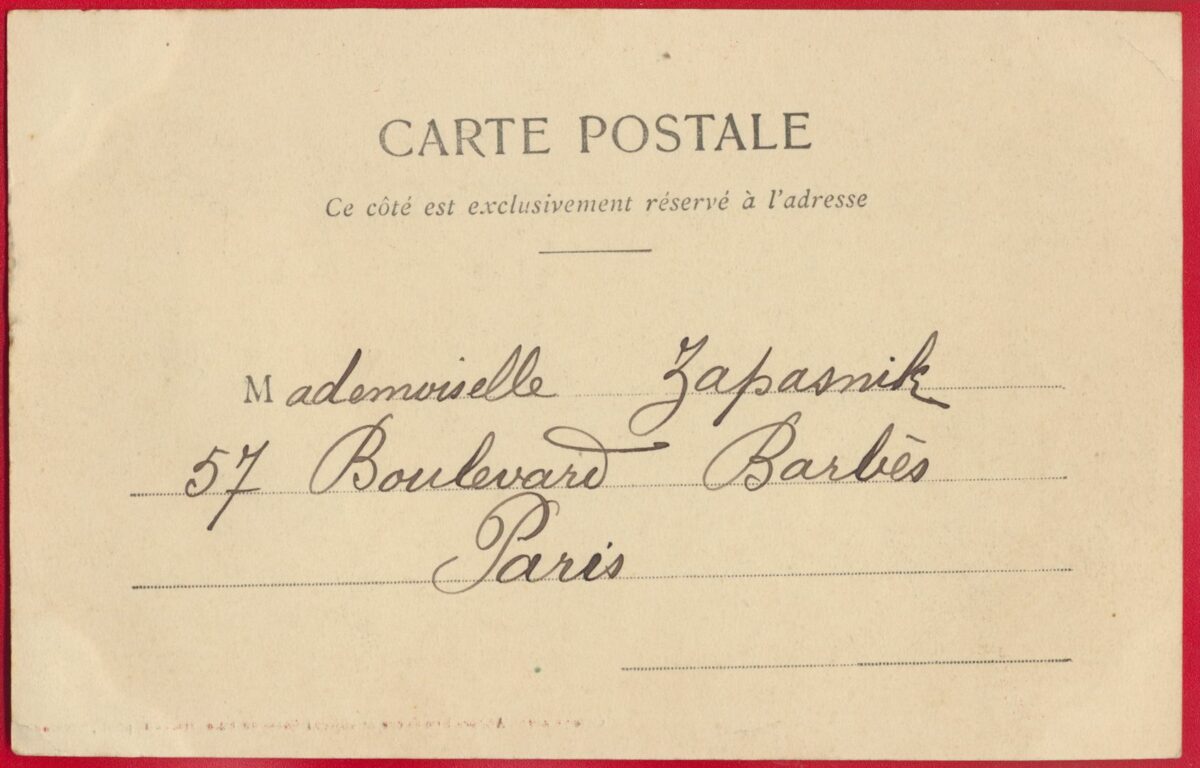 CARTE POSTALE
Ce côté est exclusivement réservé à l'adresse
Mademoiselle Zapasnik
57 Boulevard Barbès
Paris